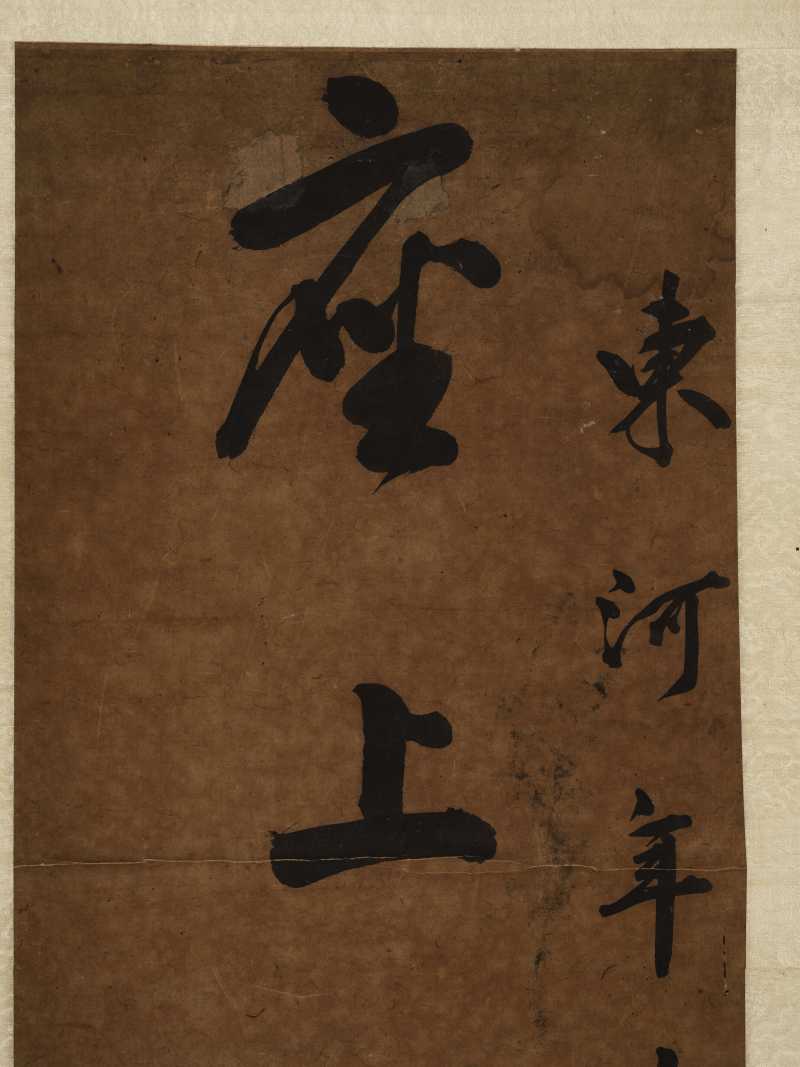 東河年
座上